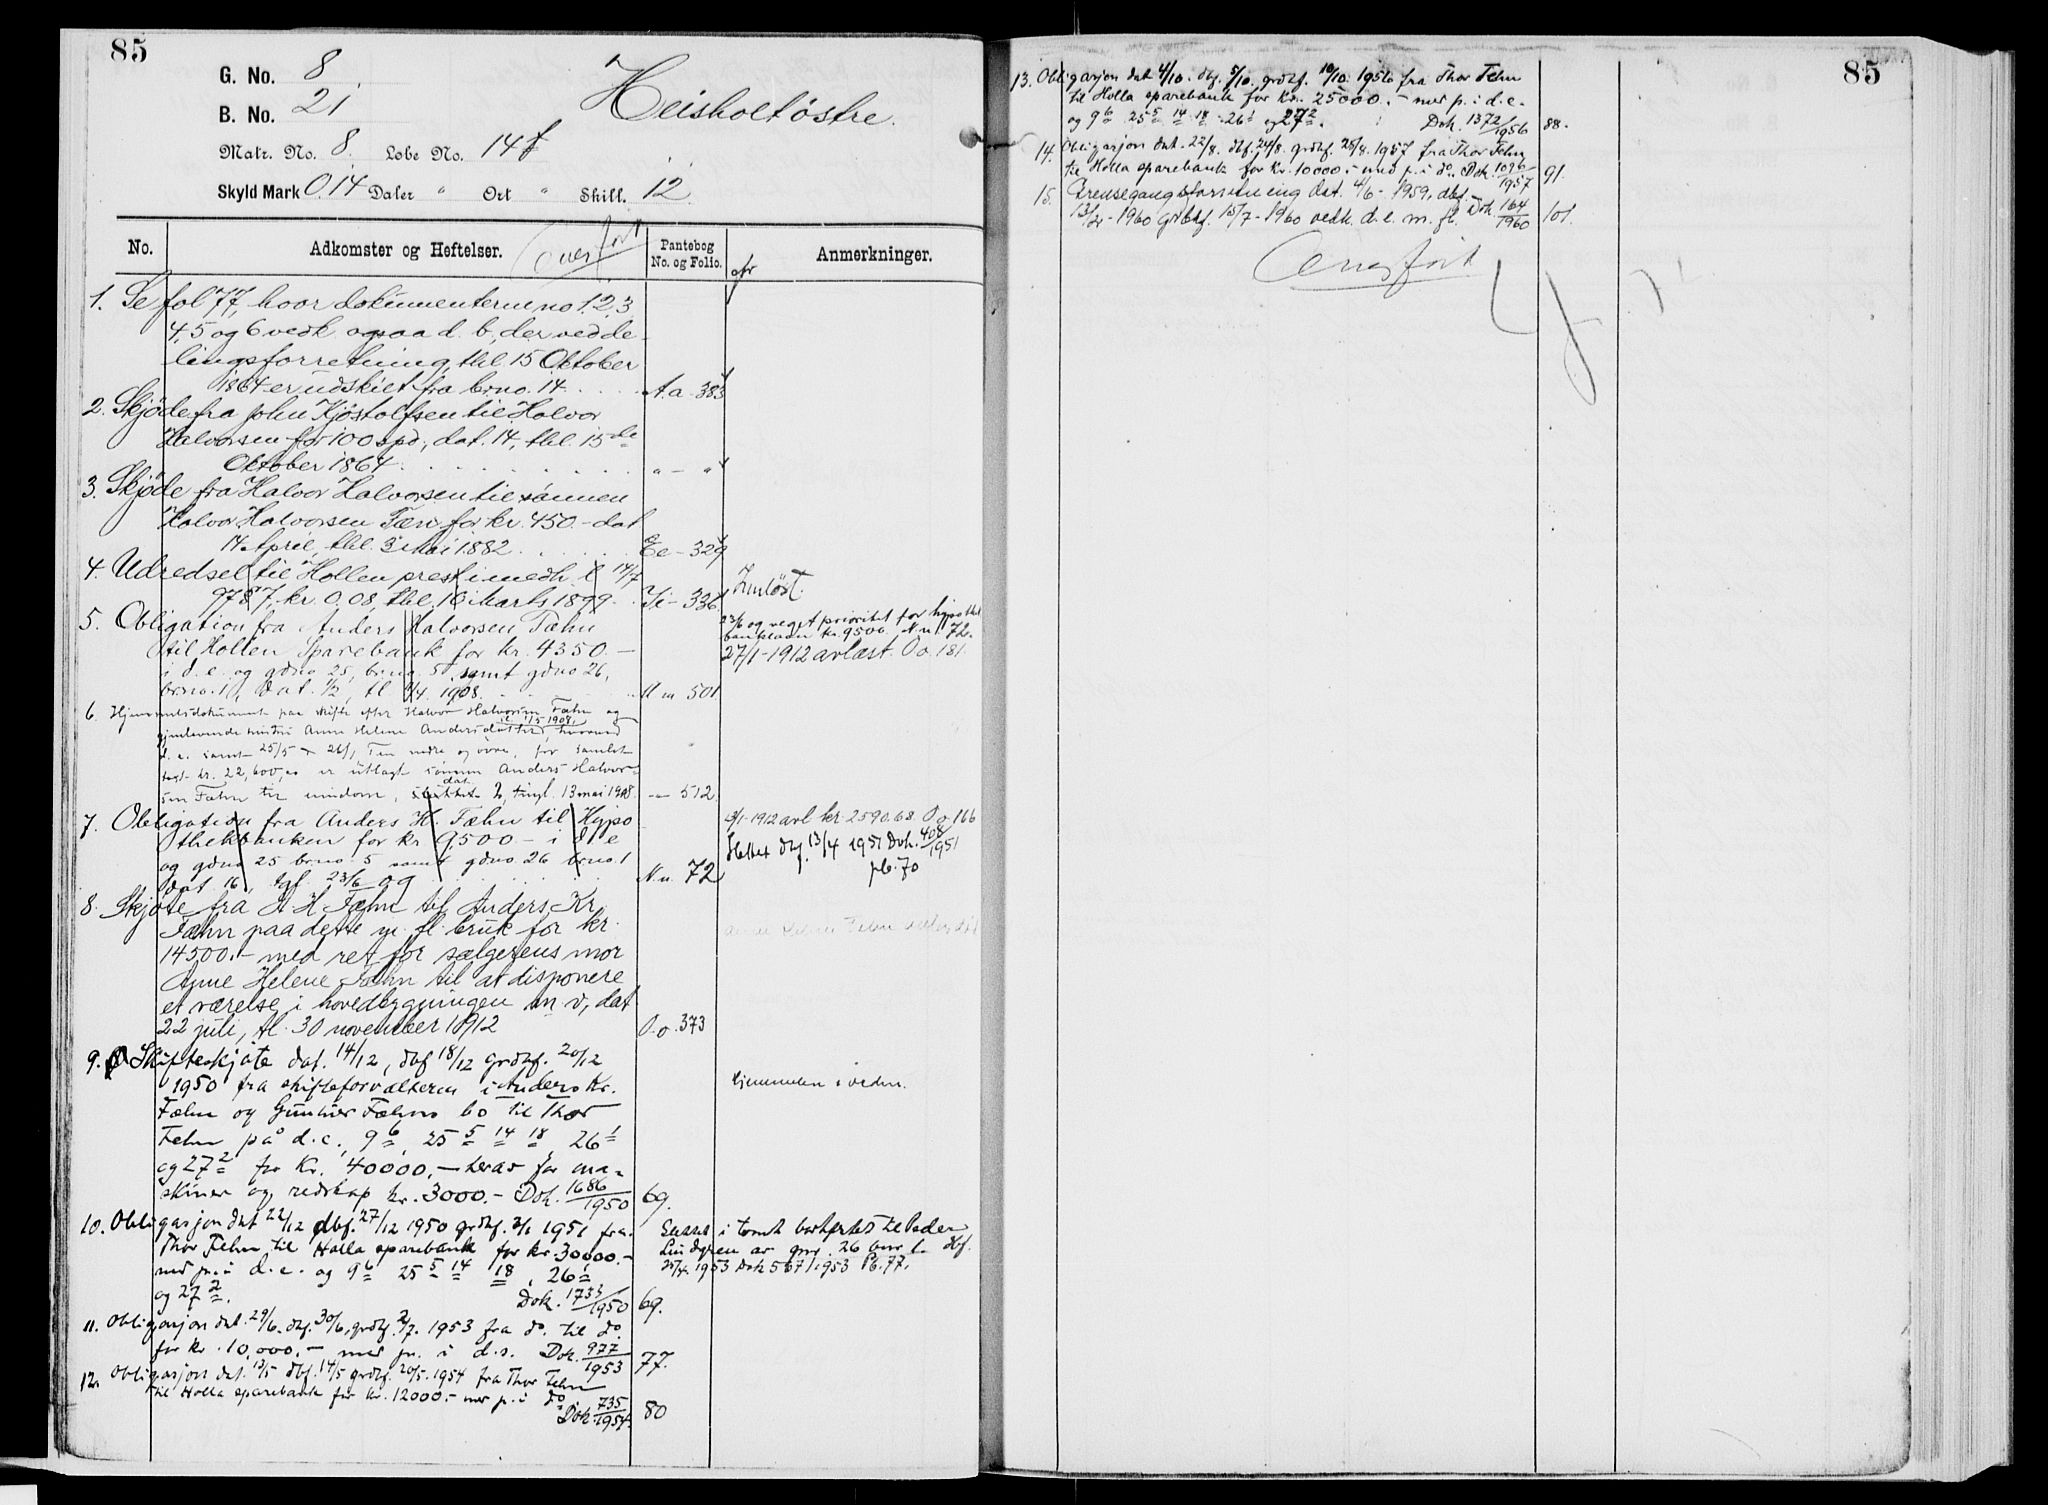 85
G. No. 8
B. No. 21
Heisholtöstre.
Matr. No. 8. Løbe No. 14f
Skyld Mark 0.14 Daler " Ort " Skill. 12.
No. Adkomster og Hefelser. Overført Pantebog No. og Folio. Anmerkninger.
1. Se fol 77, hvor dokumenterne no 1, 2, 3,
4, 5 og 6 vedk. ogsaa d. b., der ved de-
lingsforretning, thl. 15 Oktober
1864 er udskilt fra brno. 14. A.a. 383
2. Skjöde fra John Kjöstolfsen til Halvor
Halvorsen for 100 spd., dat. 14, thl. 15de
Oktober 1864. " - "
3. Skjöde fra Halvor Halvorsen til sönnen
Halvor Halvorsen Fæn for kr. 450.- dat
14 April, thl. 3 Mai 1882. Ee - 329
4. Udredsel til Hollen prest i medh. l. 14/7
97 § 7, kr. 0.08, thl. 16 Marts 1899. Ii - 336. Indløst.
5. Obligation fra Anders Halvorsen Fæhn
til Hollen Sparebank for kr. 4350.-
i d. e. og gdno 25, brno. 5 samt gdno 26,
brno. 1, dat. 1/2, tl 11/4 1908. M m 501
23/6 og veget prioritet for hypothek
banklaan kr. 9500. N n 72.
27/1-1912 avlæst. O o. 181.
6. Hjemmelsdokument paa skifte efter Halvor Halvorsen Fæhn og
gjenlevende hustru Anne Helene Andersdatter hvorved
d. e. samt 25/5 & 26/1, Fen nedre og övre, for samlet
takst kr. 22,600,00 er utlagt sönnen Anders Halvor-
sen Fæhn til eiendom, dat. 2, tingl. 13 mai 1908. -"- 512.
7. Obligation fra Anders H. Fæhn til Hypo
thekbanken for kr 9500.- i d e
og gdno 25 brno 5 samt gdno 26 brno. 1
dat. 16, tgl. 23/6 09 N.n. 72
1912 avl kr. 2590.68. O o 166
Slettet dbf. 13/4 1951 Dok. 408/1951
pb. 70
8. Skjöte fra A. H. Fæhn til Anders Kr.
Fæhn paa dette m. fl. bruk for kr.
14500.- med ret for sælgerens mor
Anne Helene Fæhn til at disponere
et værelse i hovedbygningen m. v., dat
22 juli, tl. 30 november 1912 O.o. 373
Anne Helene Fehn
9. Skifteskjøte dat. 14/12, dbf 18/12 grdbf. 20/12
1950 fra skifteforvalteren i Anders Kr.
Fæhn og Gunner Fæhns bo til Thor
Fehn på d. e., 9 6, 25 5 14 18, 26 1
og 27 2 for Kr. 40000.- herav for ma-
skiner og redskap kr. 3000.- Dok. 1686/1950 69.
Hjemmelen i orden.
10. Obligasjon dat 22/12 dbf. 27/12 1950 grdbf. 3/1 1951 fra
Thor Fehn til Holla sparebank for kr. 30,000.-
med p. i d. e. og 9 6 25 5 14 18, 26 1
og 27 2. Dok. 1733/1950 69.
Slettet i tomt bortfestet til Peder
Lindgren av gnr. 26 bnr 1. Dbf.
25/4. 1953 Dok 567/1953 Pb. 77.
11. Obligasjon dat. 29/6. dbf. 30/6, grdbf. 2/7. 1953 fra do. til do.
for kr. 10,000.- med pr. i d. e. Dok. 977/1953 77.
12. Obligasjon dat. 13/5 dbf. 14/5 grdbf. 20/5. 1954 fra Thor Fehn
til Holla sparebank for kr. 12000.- med p. i do. Dok. 735/1954. 80
85
13. Obligasjon dat 4/10. dbf. 5/10. grdbf. 10/10. 1956 fra Thor Fehn
til Holla sparebank for kr. 25000.- med p. i d. e.
og 9 6 25 5 14 18 26 1 og 27 2. Dok. 1372/1956 88.
14. Obligasjon dat. 22/8. dbf. 24/8. grdbf. 28/8. 1957 fra Thor Fehn
til Holla sparebank for kr. 10000.- med p. i do. Dok. 1096/1957 91.
15. Grensegangsforretning dat. 4/6 - 1959, dbf.
13/2 - 1960 grdbf. 15/7 - 1960 vedk. d. e. m. fl. Dok 164/1960 101.
Overført